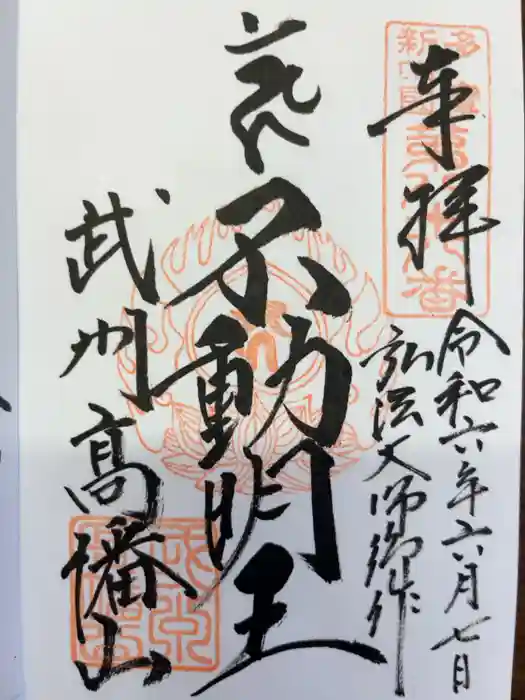 奉拝
令和六年六月七日
弘法大師御作
不動明王
武州高幡山